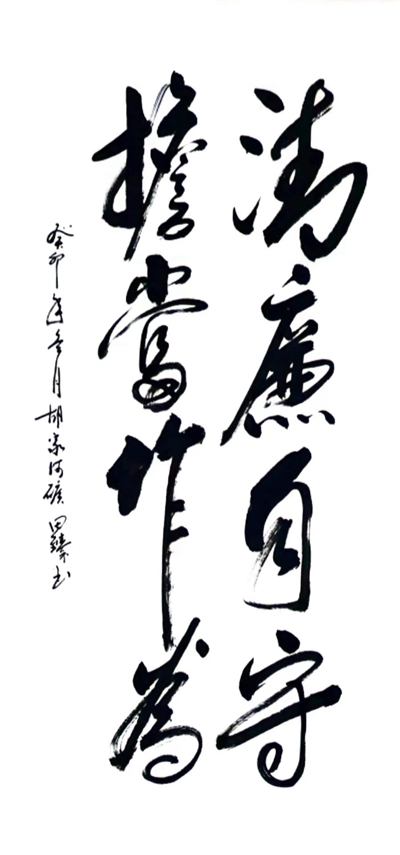 清廉自守
擔當作為
癸卯年冬月胡家河礦田臻书